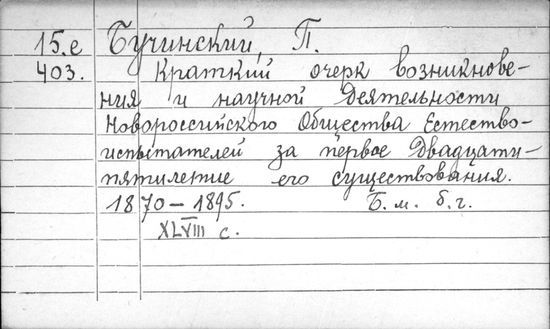 15.е Бучинский, П.
403. Краткий очерк возникнове-
ния и научной Деятельности
Новороссийского Общества Естество-
испытателей за первое Двадцати-
пятилетие его существования.
1870-1895. Б.м. б.г.
XLVIII с.